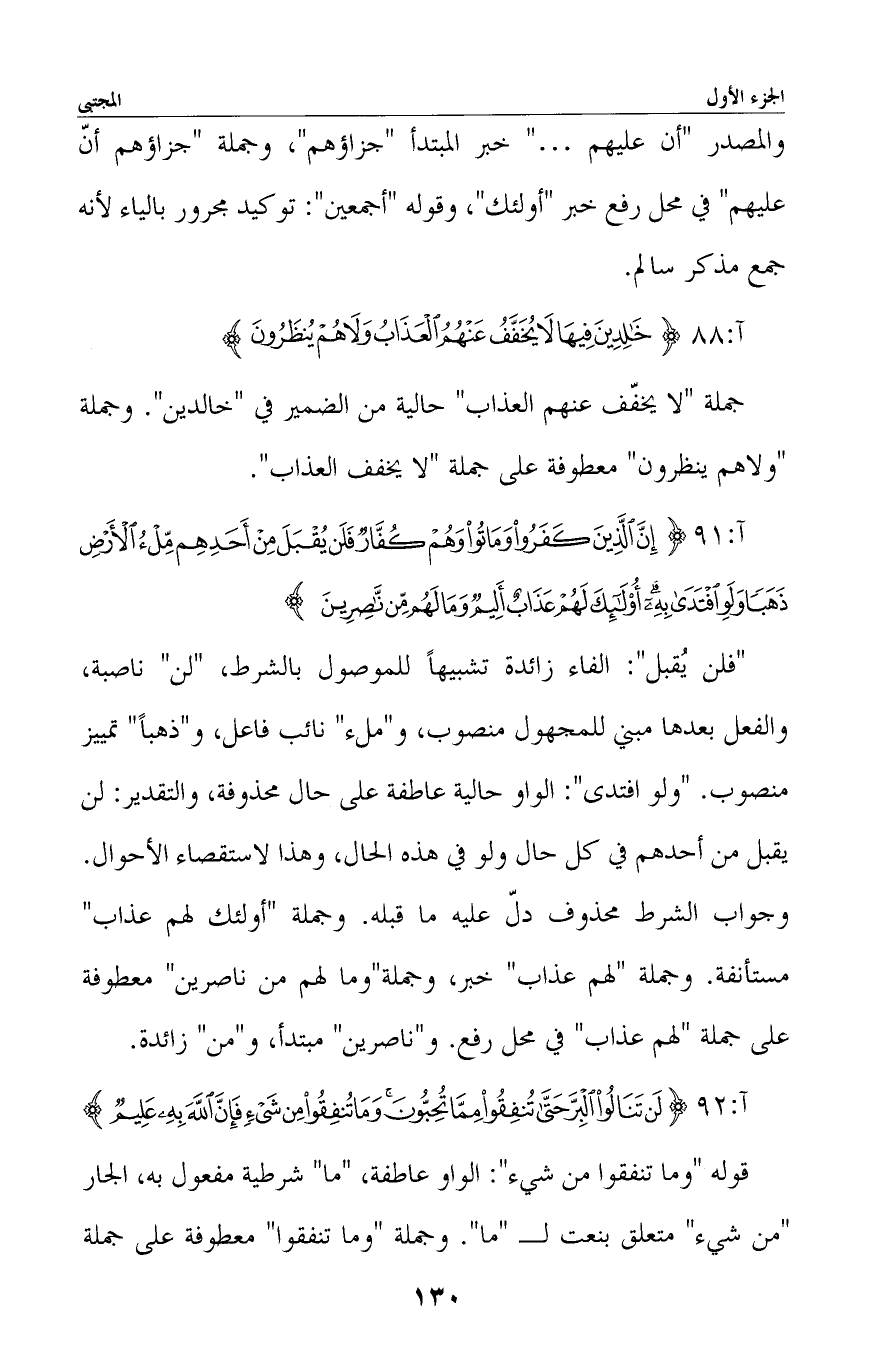 الجزء الأول المجتبى
والمصدر "أن عليهم ..." خبر المبتدأ "جزاؤهم"، وجملة "جزاؤهم أنّ
عليهم" في محل رفع خبر "أولئك"، وقوله "أجمعين": توكيد مجرور بالياء لأنه
جمع مذكر سالم.
آ:٨٨ ﴿ خَٰلِدِينَ فِيهَا لَا يُخَفَّفُ عَنْهُمُ ٱلْعَذَابُ وَلَا هُمْ يُنظَرُونَ ﴾
جملة "لا يخفّف عنهم العذاب" حالية من الضمير في "خالدين". وجملة
"ولاهم ينظرون" معطوفة على جملة "لا يخفف العذاب".
آ:٩١ ﴿ إِنَّ ٱلَّذِينَ كَفَرُوا۟ وَمَاتُوا۟ وَهُمْ كُفَّارٌ فَلَن يُقْبَلَ مِنْ أَحَدِهِم مِّلْءُ ٱلْأَرْضِ
ذَهَبًا وَلَوِ ٱفْتَدَىٰ بِهِۦٓ ۗ أُو۟لَٰٓئِكَ لَهُمْ عَذَابٌ أَلِيمٌ وَمَا لَهُم مِّن نَّٰصِرِينَ ﴾
"فلن يُقبل": الفاء زائدة تشبيهاً للموصول بالشرط، "لن" ناصبة،
والفعل بعدها مبني للمجهول منصوب، و"ملء" نائب فاعل، و"ذهباً" تمييز
منصوب. "ولو افتدى": الواو حالية عاطفة على حال محذوفة، والتقدير: لن
يقبل من أحدهم في كل حال ولو في هذه الحال، وهذا لاستقصاء الأحوال.
وجواب الشرط محذوف دلّ عليه ما قبله. وجملة "أولئك لهم عذاب"
مستأنفة. وجملة "لهم عذاب" خبر، وجملة"وما لهم من ناصرين" معطوفة
على جملة "لهم عذاب" في محل رفع. و"ناصرين" مبتدأ، و"من" زائدة.
آ:٩٢ ﴿ لَن تَنَالُوا۟ ٱلْبِرَّ حَتَّىٰ تُنفِقُوا۟ مِمَّا تُحِبُّونَ ۚ وَمَا تُنفِقُوا۟ مِن شَىْءٍ فَإِنَّ ٱللَّهَ بِهِۦ عَلِيمٌ ﴾
قوله "وما تنفقوا من شيء": الواو عاطفة، "ما" شرطية مفعول به، الجار
"من شيء" متعلق بنعت لـــ "ما". وجملة "وما تنفقوا" معطوفة على جملة
١٣٠